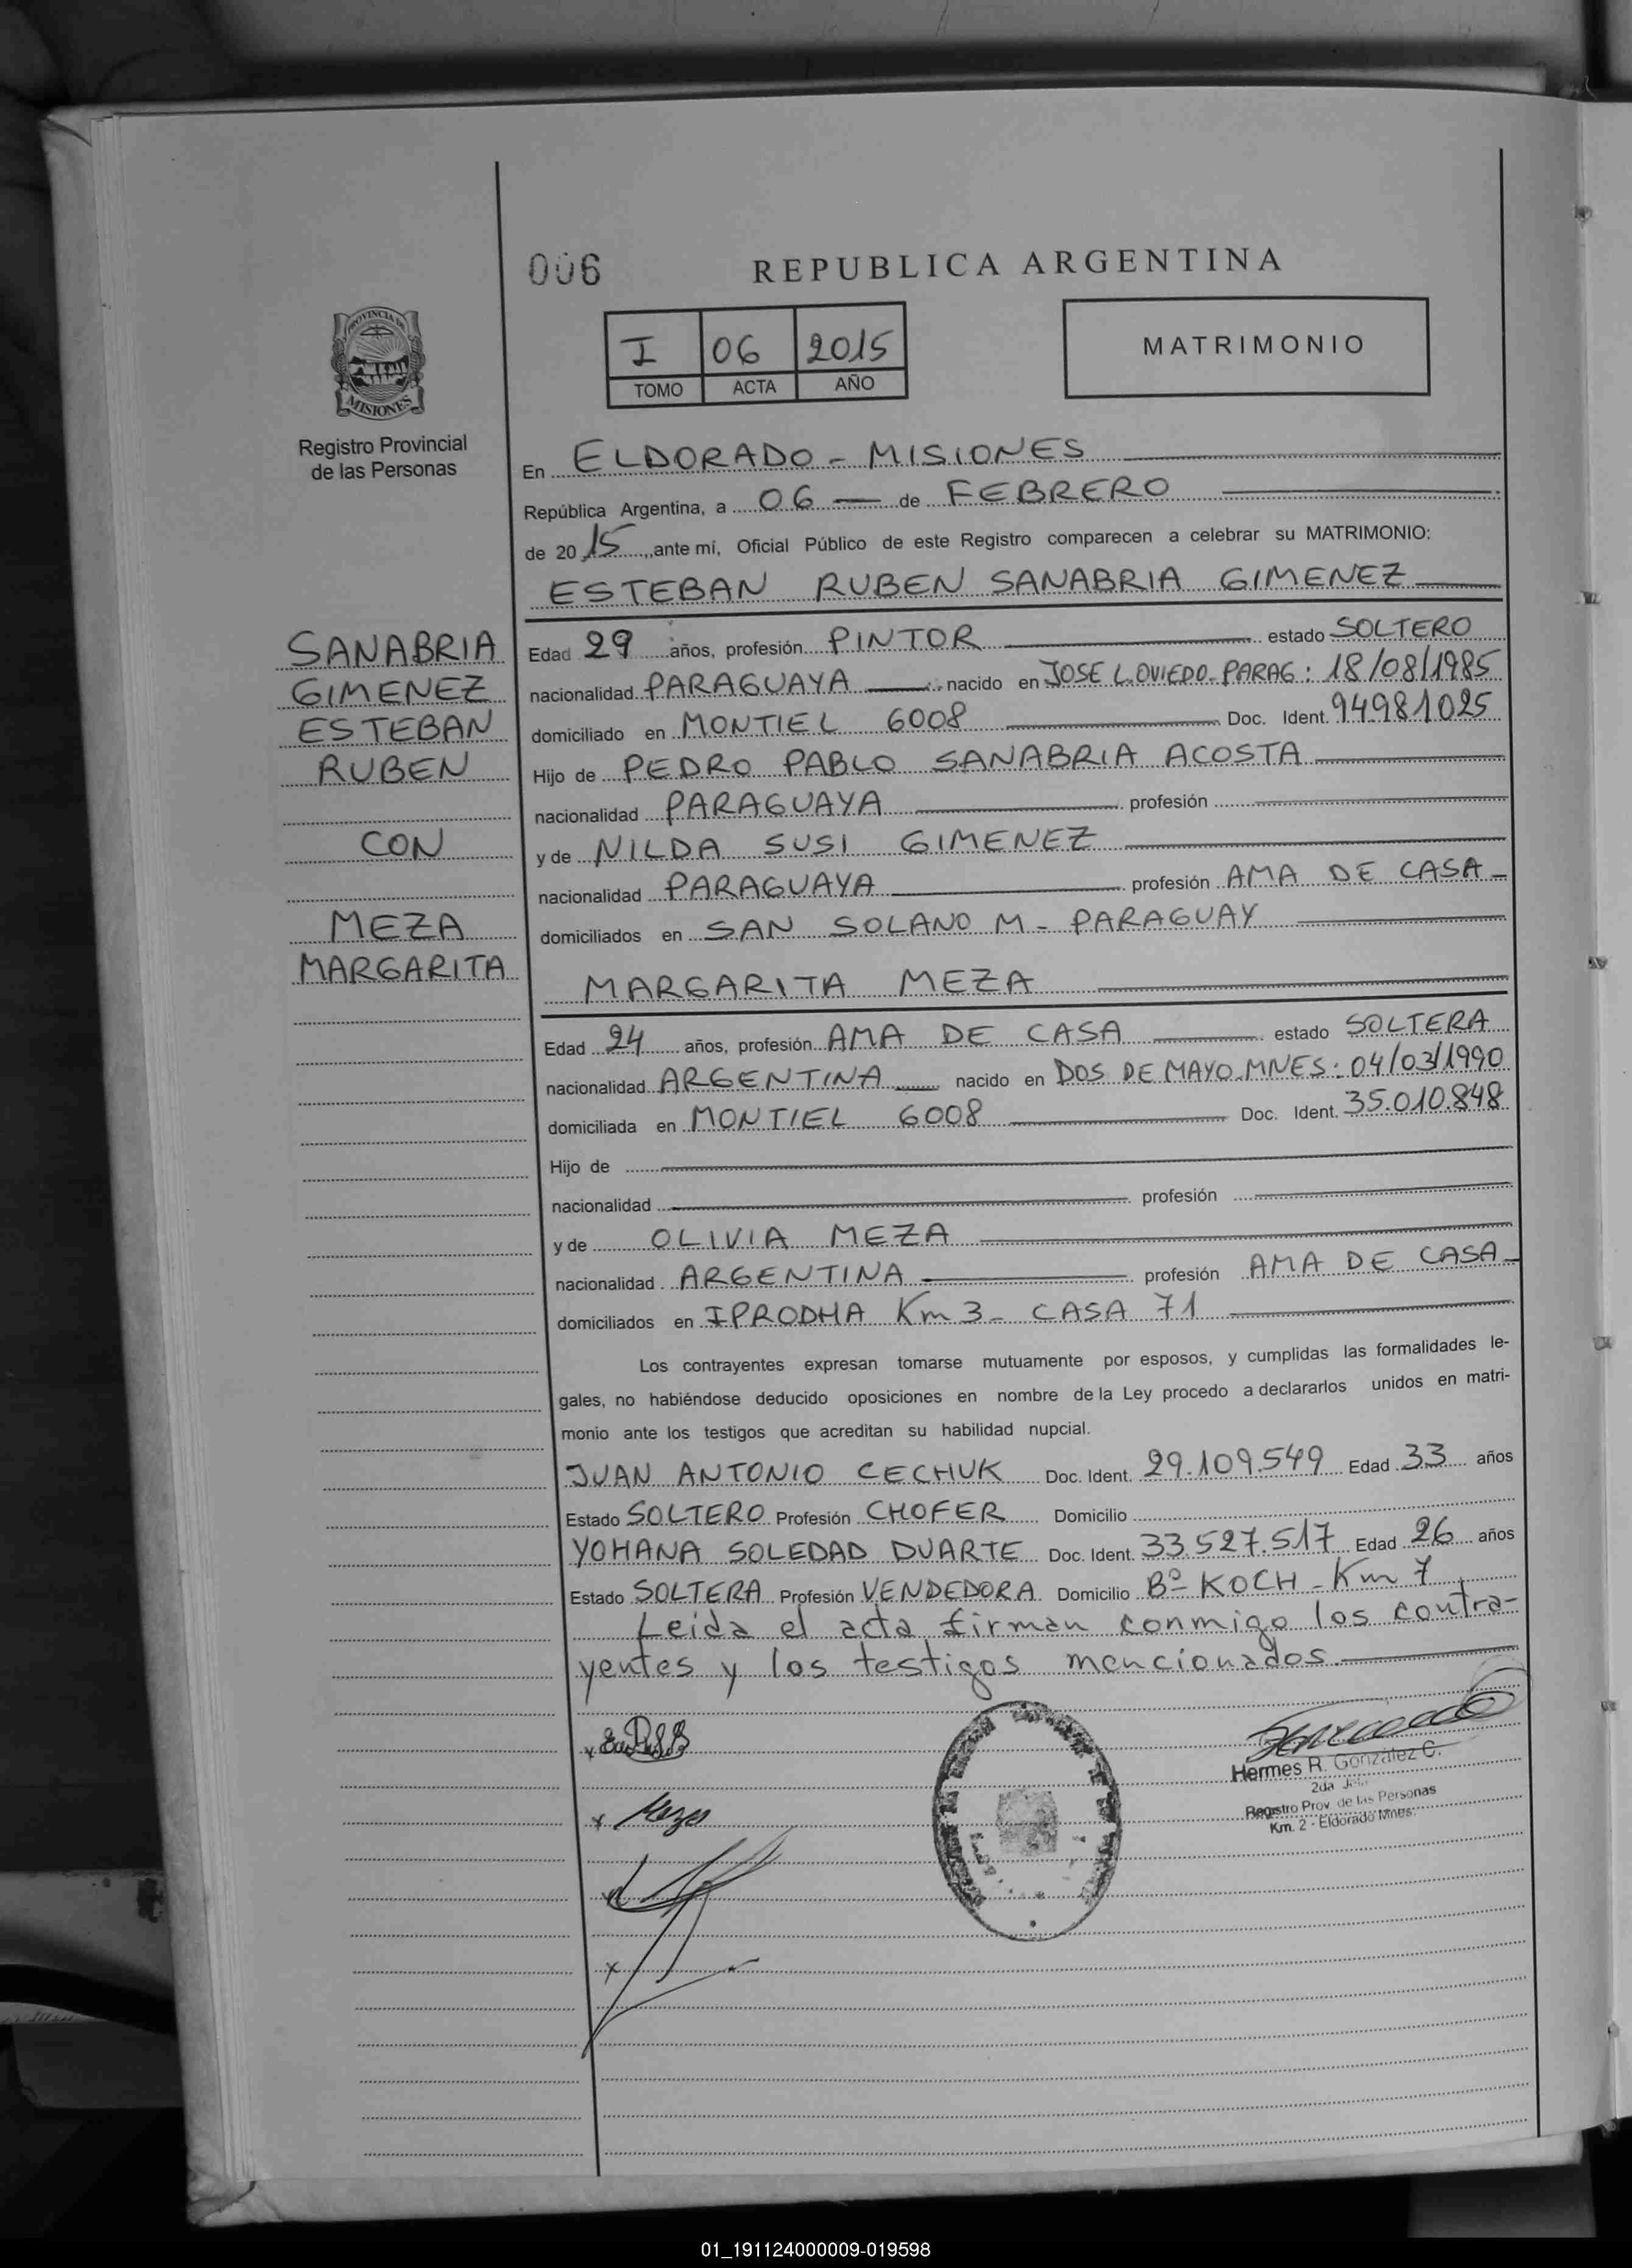 006
REPUBLICA ARGENTINA
PROVINCIA DE
MISIONES
Registro Provincial
de las Personas
I 06 2015
TOMO ACTA AÑO
MATRIMONIO
En ELDORADO - MISIONES
República Argentina, a 06 de FEBRERO
de 2015, ante mí, Oficial Público de este Registro comparecen a celebrar su MATRIMONIO:
ESTEBAN RUBEN SANABRIA GIMENEZ
SANABRIA
GIMENEZ
ESTEBAN
RUBEN
CON
MEZA
MARGARITA
Edad 29 años, profesión PINTOR estado SOLTERO
nacionalidad PARAGUAYA nacido en JOSE L. OVIEDO - PARAG: 18/08/1985
domiciliado en MONTIEL 6008 Doc. Ident. 94981025
Hijo de PEDRO PABLO SANABRIA ACOSTA
nacionalidad PARAGUAYA profesión
y de NILDA SUSI GIMENEZ
nacionalidad PARAGUAYA profesión AMA DE CASA
domiciliados en SAN SOLANO M - PARAGUAY
MARGARITA MEZA
Edad 24 años, profesión AMA DE CASA estado SOLTERA
nacionalidad ARGENTINA nacido en DOS DE MAYO. MNES: 04/03/1990
domiciliada en MONTIEL 6008 Doc. Ident. 35.010.848
Hijo de
nacionalidad profesión
y de OLIVIA MEZA
nacionalidad ARGENTINA profesión AMA DE CASA
domiciliados en IPRODHA Km 3 - CASA 71
Los contrayentes expresan tomarse mutuamente por esposos, y cumplidas las formalidades le-
gales, no habiéndose deducido oposiciones en nombre de la Ley procedo a declararlos unidos en matri-
monio ante los testigos que acreditan su habilidad nupcial.
JUAN ANTONIO CECHUK Doc. Ident. 29.109.549 Edad 33 años
Estado SOLTERO Profesión CHOFER Domicilio
YOHANA SOLEDAD DUARTE Doc. Ident. 33.527.517 Edad 26 años
Estado SOLTERA Profesión VENDEDORA Domicilio Bº KOCH - Km 7
Leida el acta firman conmigo los contra-
yentes y los testigos mencionados.
x
x Meza
x
Hermes R. González C.
2da
Registro Prov. de las Personas
Km. 2 - Eldorado Mnes.
01_191124000009-019598